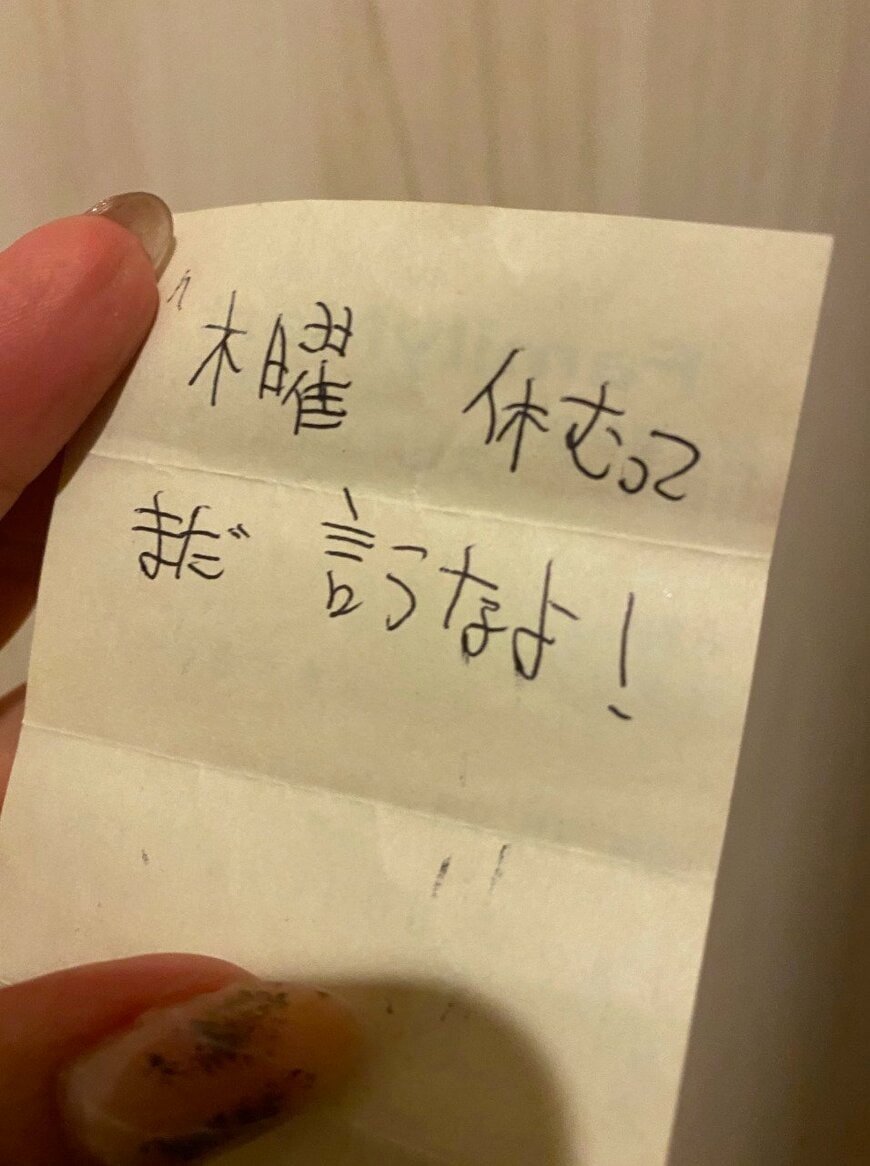 木曜 休むって
まだ 言うなよ!